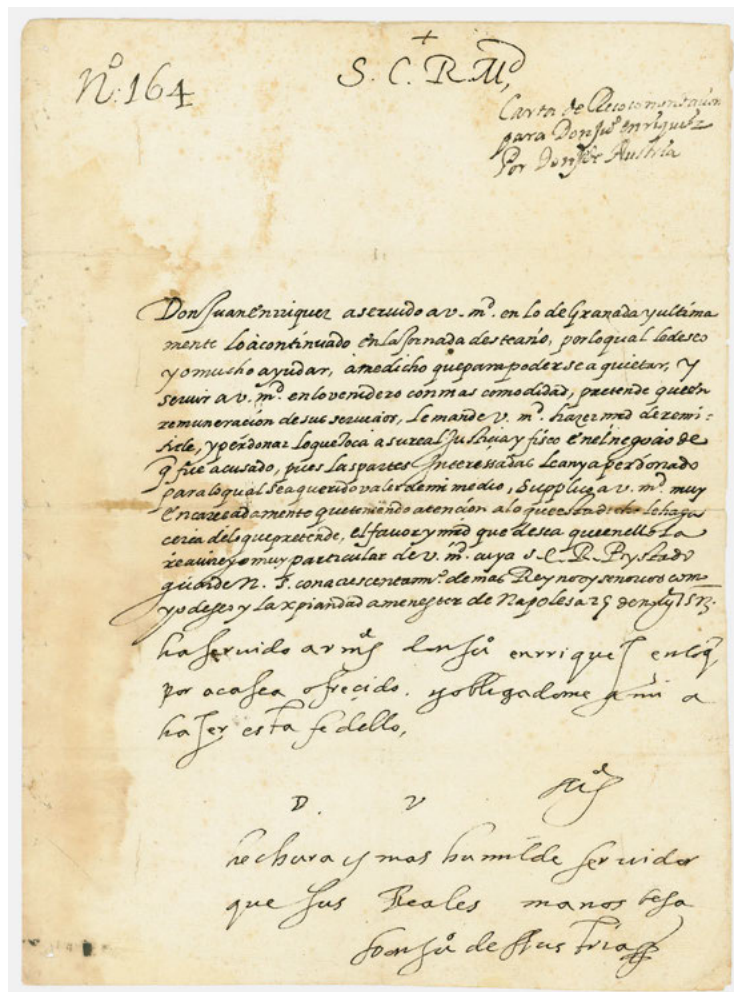 +
S. C. R. Md,
No. 164
Carta de Recomentacion
para Don Juo enriquez
Por Don Jue de Austria
Don Juan enrriquez a seruido a v. md. en lo de Granada y ultima
mente lo à continuado en la Jornada deste año, por lo qual le deseo
yo mucho ayudar, à me dicho que para poderse a quietar, y
seruir a v. md. en lo venidero con mas comodidad, pretende que en
remuneracion de sus seruicios, le mande v. md. hazer mrd de remi-
tirle, y perdonar lo que toca a su real Justicia y fisco en el negocio de
q̃ fue acusado, pues las partes Interessadas le an ya perdonado
para lo qual se a querido valer de mi medio, Supplico a v. md. muy
encarecadamente que teniendo atencion a lo que esta dicho le haga
cerca de lo que pretende, el favor y mrd que desea que en ello la
reciuire yo muy particular de v. md. cuya s. C. R. P
guarde N. S. con acrescentamo. de mas Reynos y senorios como
yo deseo y la xpiandad a menester de Napoles a 25 de
ha servido a v md don juo enrriques en lo q̃
por aca sea ofrecido. y obligadome a mi a
haser esta fe dello,
D. V. Md
hechura y mas humilde servidor
que sus Reales manos besa
don juo de Austria